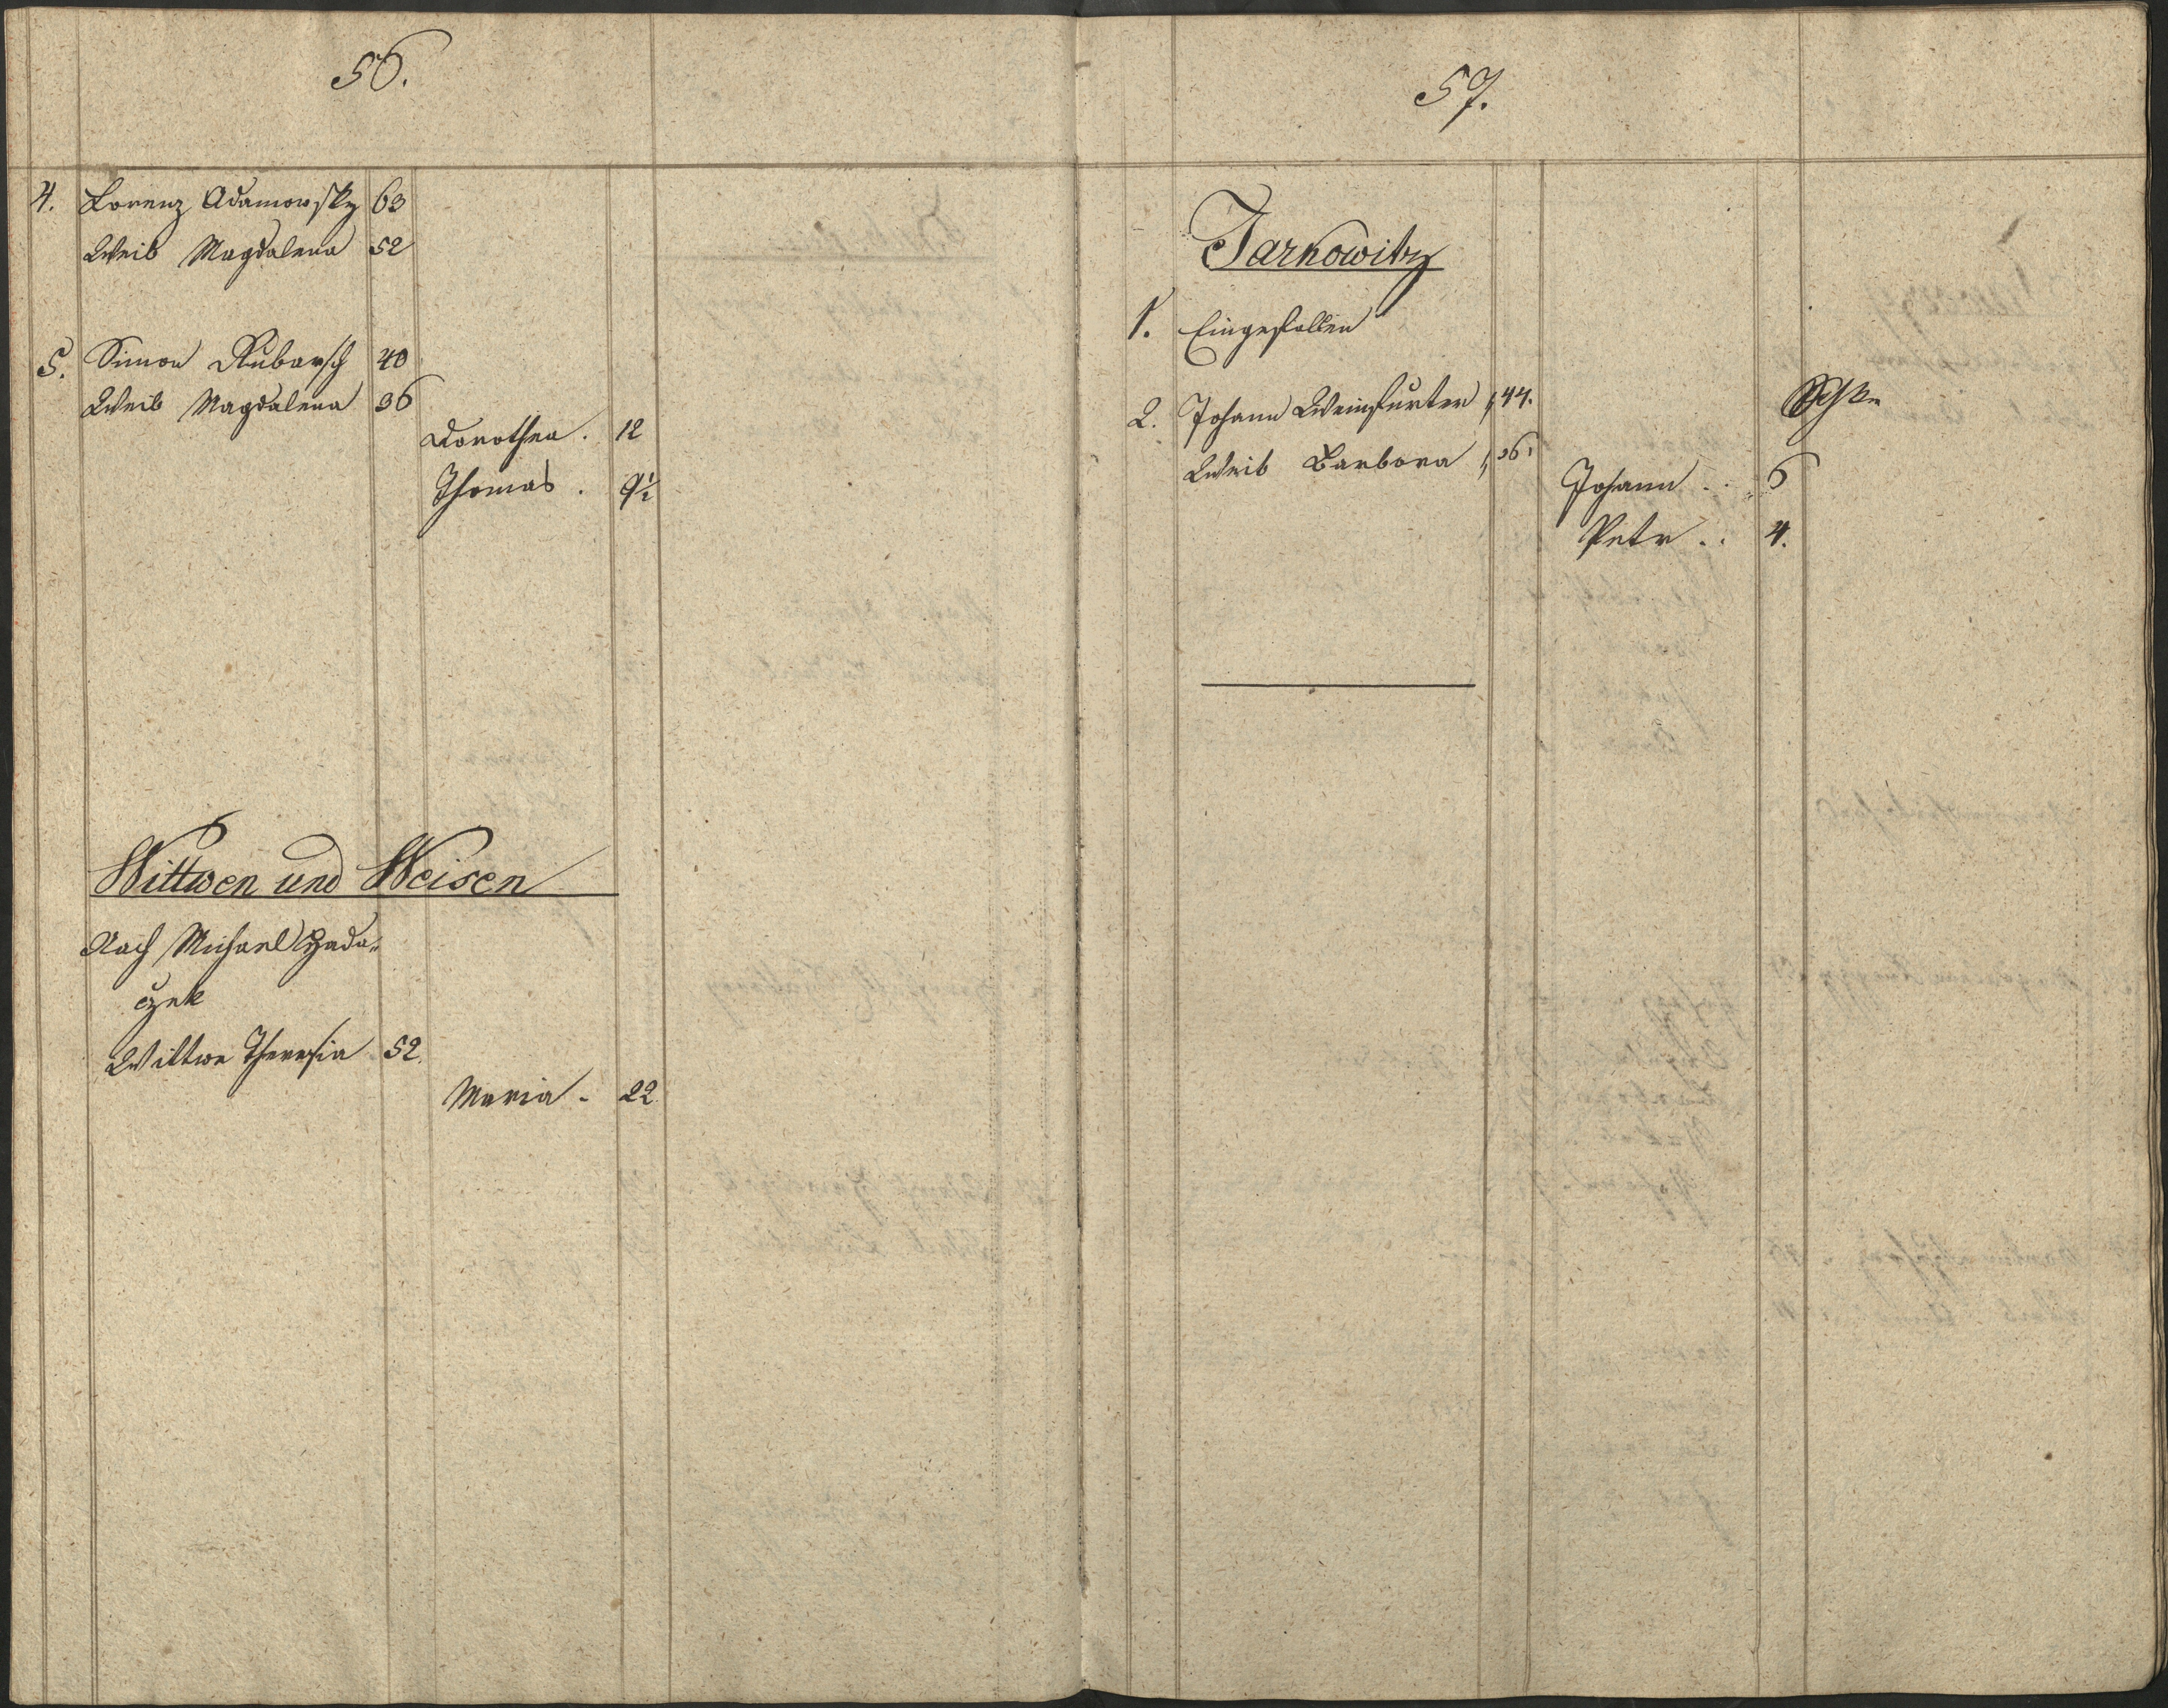 56.
4. Lorenz Adamowsky 63
Weib Magdalena 52
5. Simon Kubarsch 40
Weib Magdalena 36
Dorothea . 12
Thomas . 9½
Wittwen und Weisen
Nach Michael Hada„
czek
Wittwe Theresia 52.
Maria - 22
57.
Jarkowitz
1. Eingefallen
2. Johann Weinfurter 44.
Weib Barbora 36
Johann .. 6
Petr .. 4.